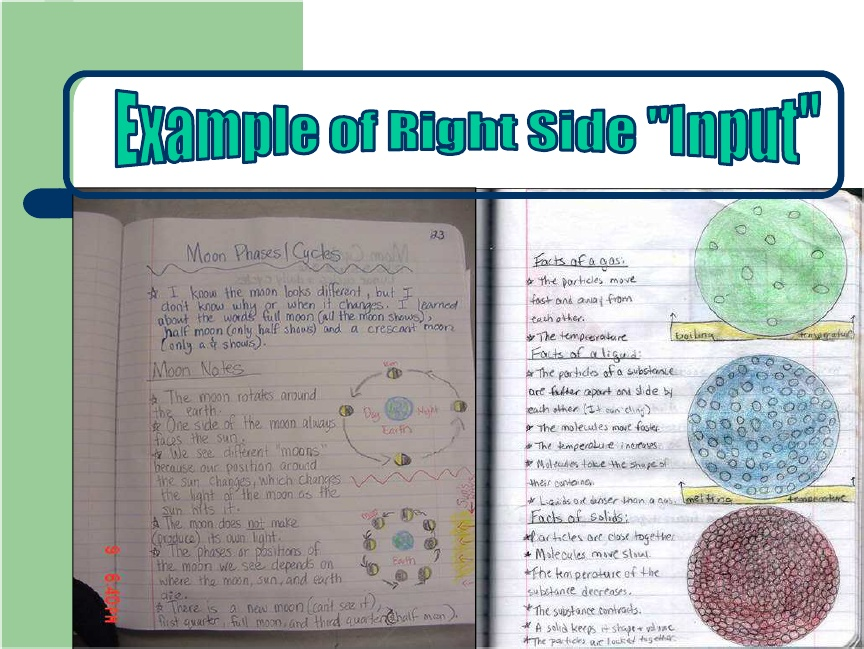 Example of Right Side "Input"
23
Moon Phases/Cycles
☆ I know the moon looks different, but I
don't know why or when it changes. I learned
about the words full moon (all the moon shows),
half moon (only half shows) and a crescant moon
(only a ¼ shows).
Moon Notes
☆ The moon rotates around
the earth.
☆ One side of the moon always
faces the sun.
☆ We see different "moons"
because our position around
the sun changes, which changes
the light of the moon as the
sun hits it.
☆ The moon does not make
(produce) its own light.
☆ The phases or positions of
the moon we see depends on
where the moon, sun, and earth
are.
☆ There is a new moon (can't see it),
first quarter, full moon, and third quarter (half moon).
Day
Night
Earth
Earth
Facts of a gas:
* The particles move
fast and away from
each other.
* The temprerature
Facts of a liquid:
* The particles of a substance
are farther apart and slide by
each other (It can cling)
* The molecules move faster.
* The temperature increases.
* Molecules take the shape of
their container.
* Liquids are denser than a gas.
Facts of solids:
* Particles are close together
* Molecules move slow.
* The temperature of the
substance decreases.
* The substance contracts.
* A solid keeps it shape & volume
* The particles are locked together.
boiling temperature
melting temperature